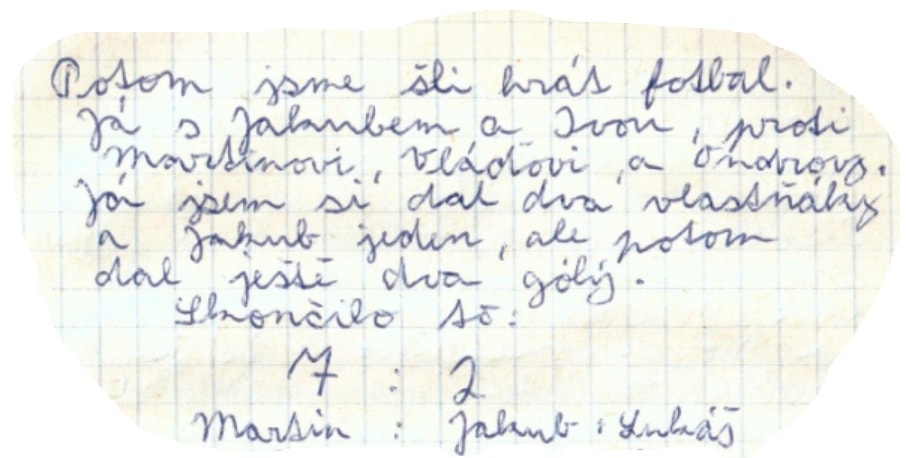 Potom jsme šli hrát fotbal.
Já s Jakubem a Ivou, proti
Martinovi, Vláďovi, a Ondrovy.
Já jsem si dal dva vlastňáky
a Jakub jeden, ale potom
dal ještě dva gólý.
Skončilo tó:
7 : 2
Martin : Jakub, Lukáš